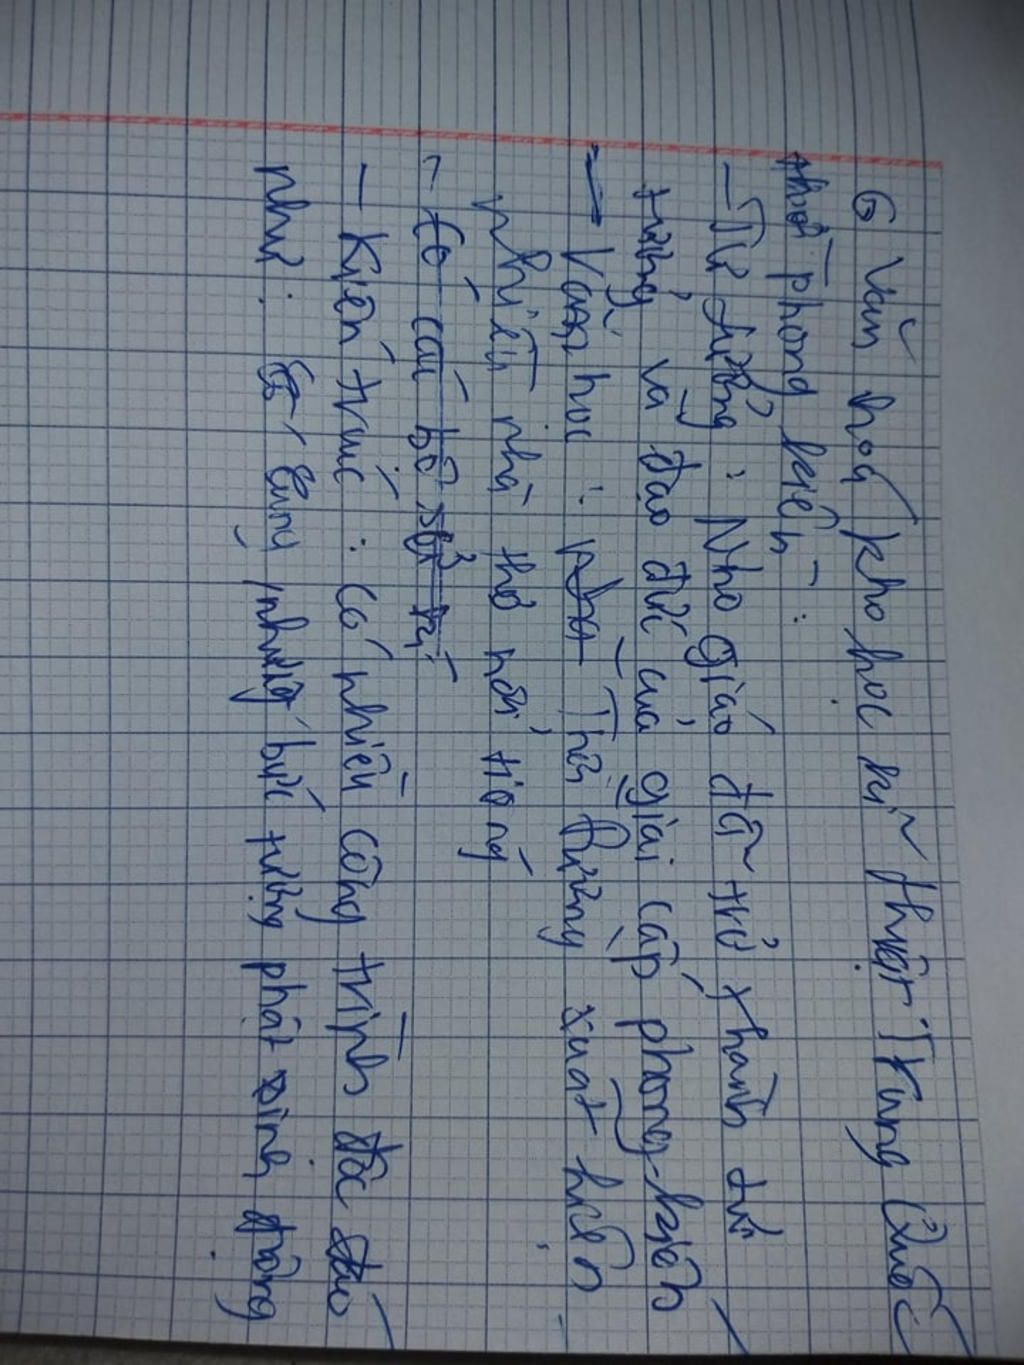 ⑥ Văn hoá kho học kĩ thuật Trung Quốc
thời phong kiến :
- Tư tưởng : Nho giáo đã trở thành tư
tưởng và đạo đức của giai cấp phong kiến
- Văn học : Thời Đường xuất hiện
nhiều nhà thơ nổi tiếng
- Có các bộ sử
- Kiến trúc : Có nhiều công trình độc đáo
như : cung những bức tượng phật sinh động